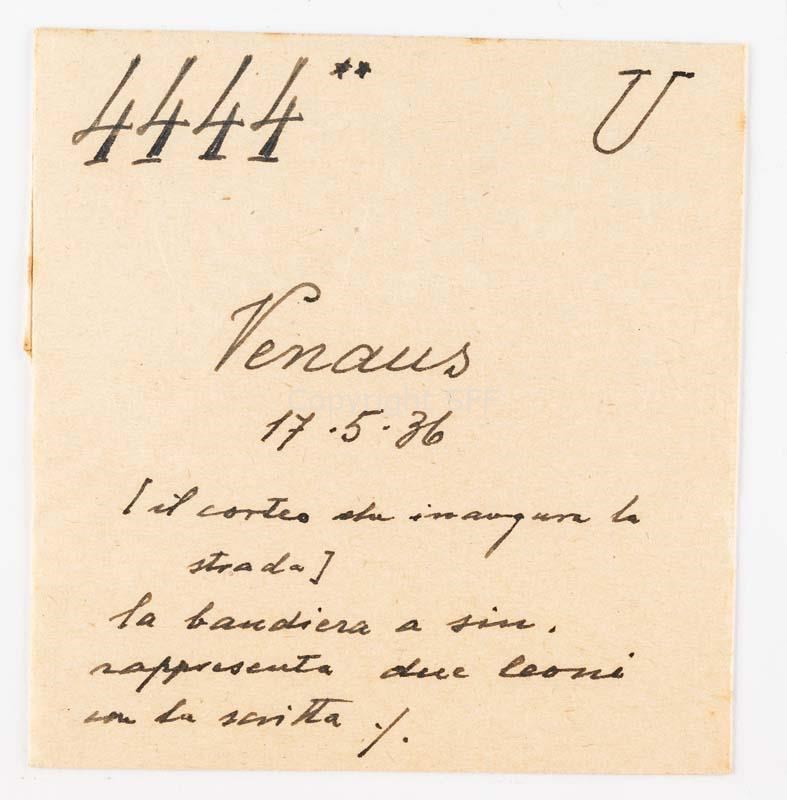 4444** U
Venaus
17.5.36
[il corteo che inaugura la
strada]
la bandiera a sin.
rappresenta due leoni
con la scritta ./.